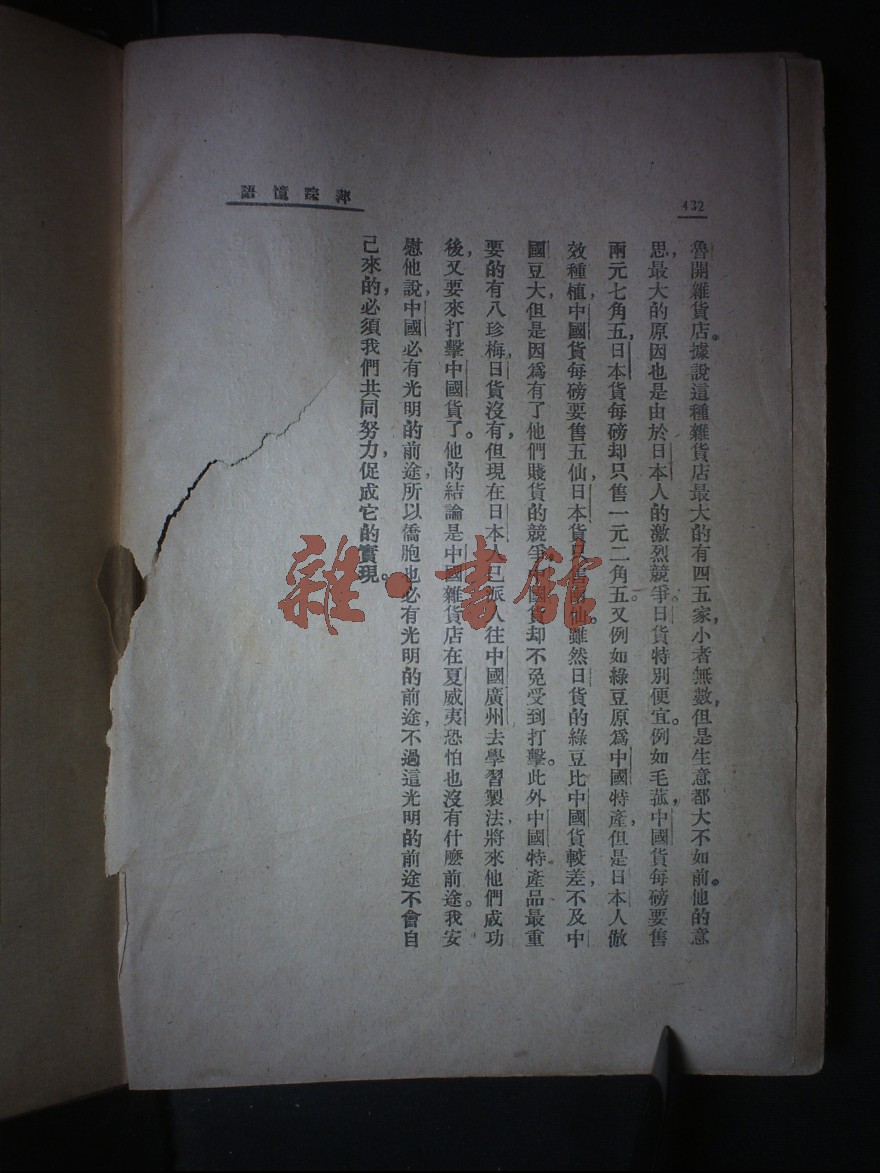 432
萍踪憶語
魯開雜貨店。據說這種雜貨店最大的有四五家，小者無數，但是生意都大不如前。他的意
思，最大的原因也是由於日本人的激烈競爭。日貨特別便宜。例如毛菰，中國貨每磅要售
兩元七角五，日本貨每磅却只售一元二角五。又例如綠豆原爲中國特產，但是日本人倣
效種植，中國貨每磅要售五仙，日本貨只售仙。雖然日貨的綠豆比中國貨較差，不及中
國豆大，但是因爲有了他們賤貨的競爭，中國貨却不免受到打擊。此外中國特產品最重
要的有八珍梅，日貨沒有，但現在日本人已派人往中國廣州去學習製法，將來他們成功
後，又要來打擊中國貨了。他的結論是中國雜貨店在夏威夷恐怕也沒有什麼前途。我安
慰他說，中國必有光明的前途，所以僑胞也必有光明的前途，不過這光明的前途不會自
己來的，必須我們共同努力，促成它的實現。
雜·書館